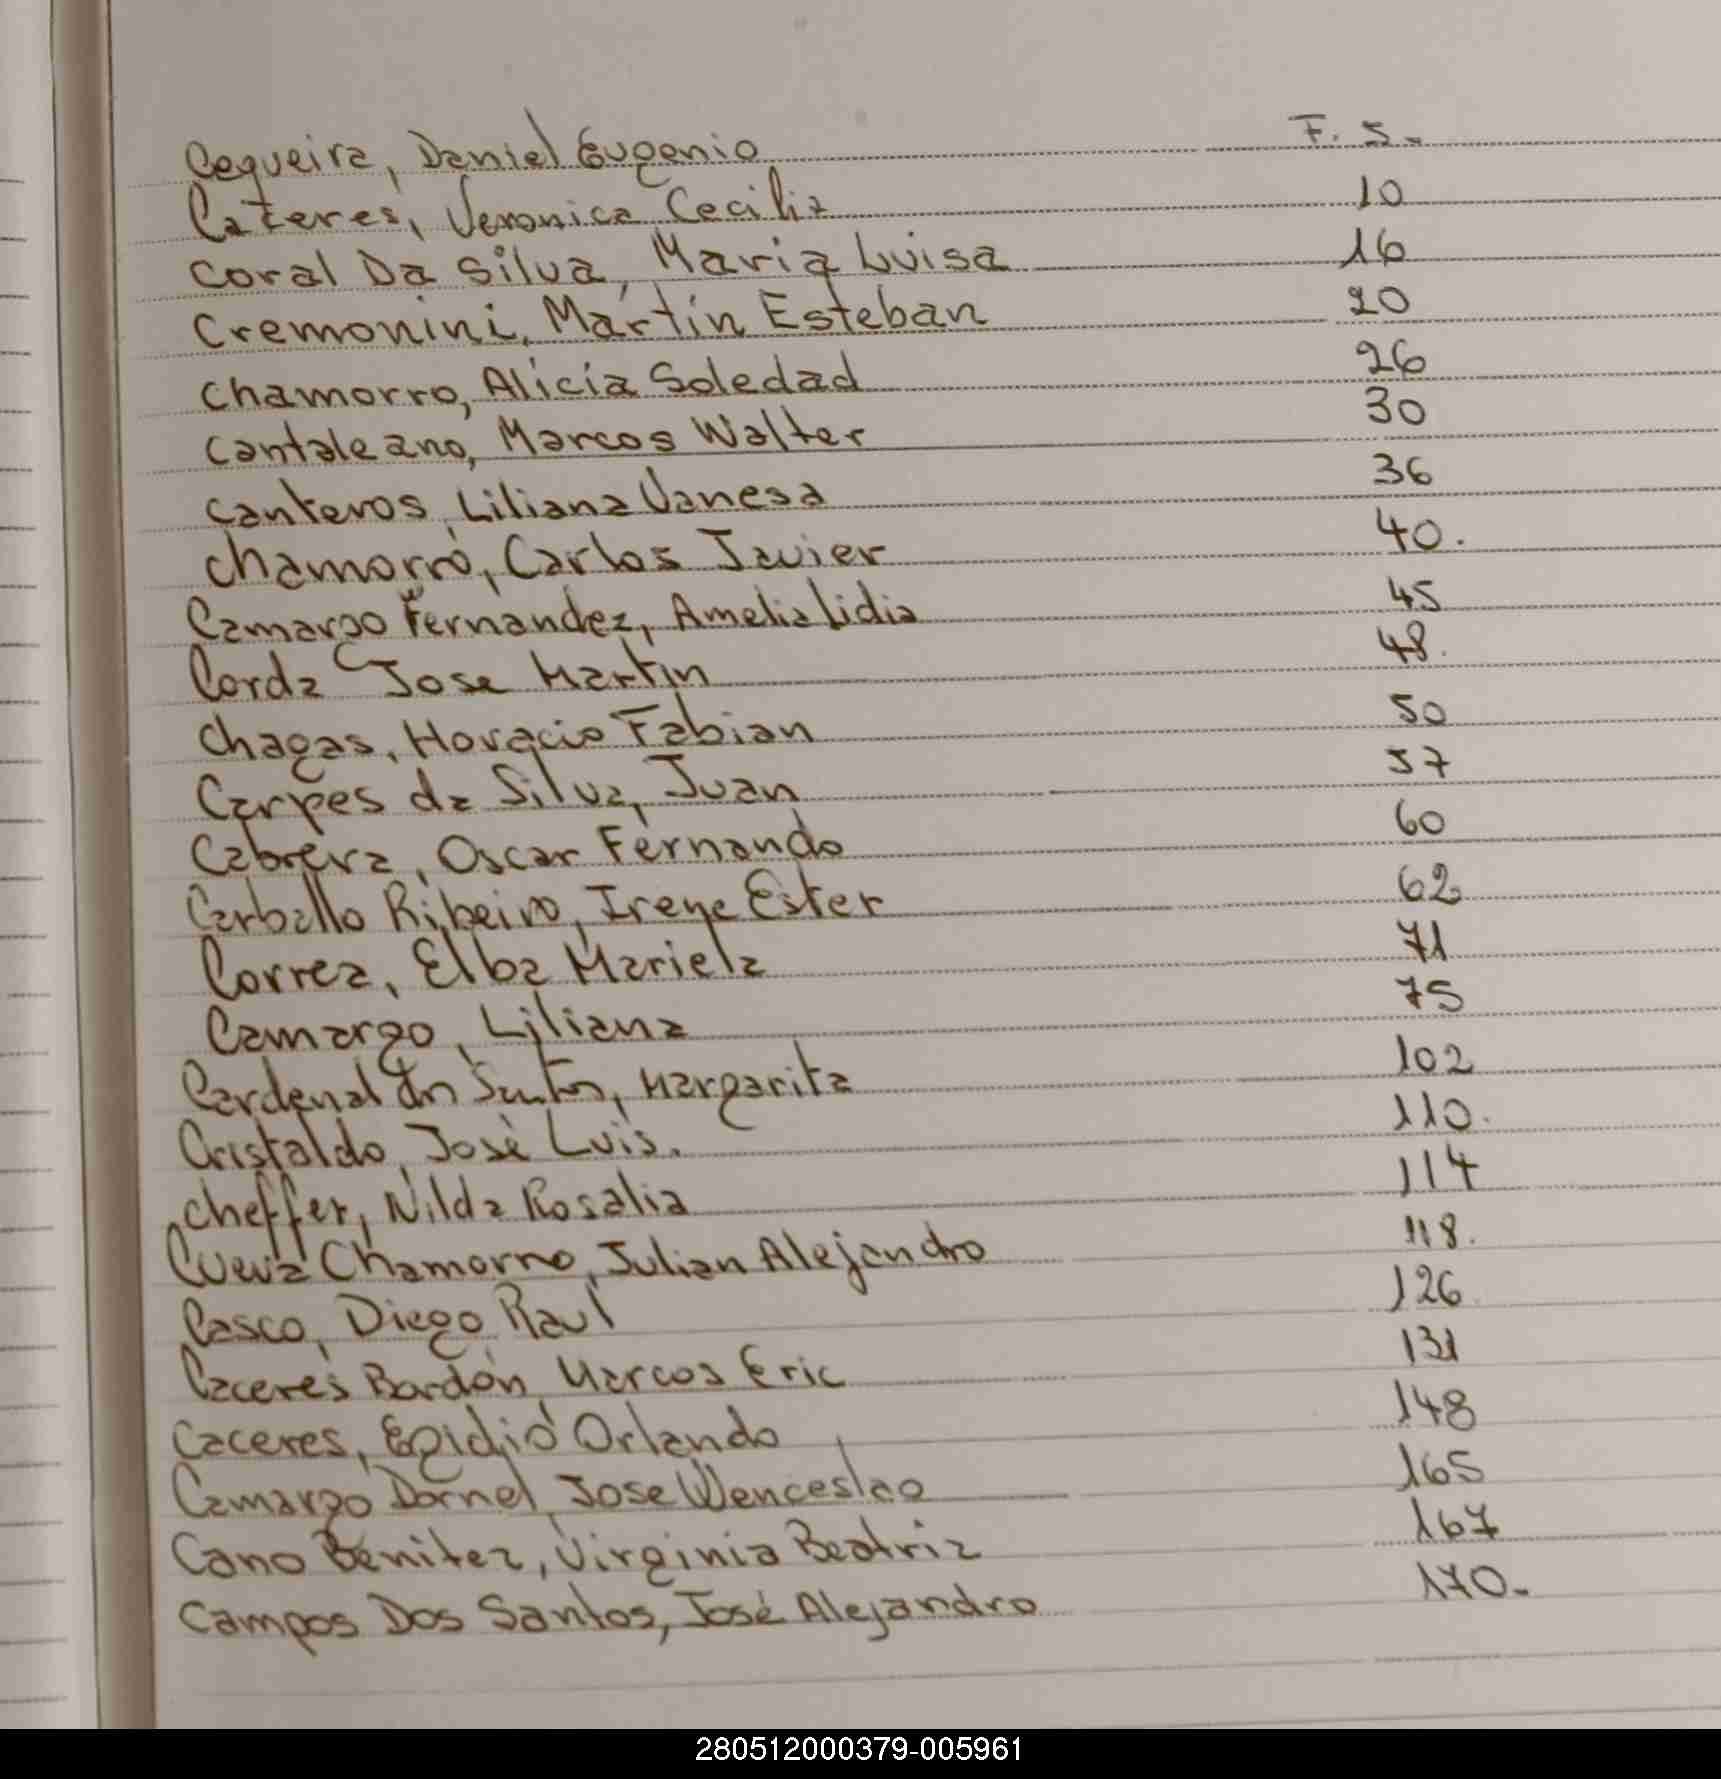 Cequeira, Daniel Eugenio F. 5.-
Cateres, Veronica Cecilia 10
Coral Da Silva, Maria Luisa 16
Cremonini, Martín Esteban 20
Chamorro, Alicia Soledad 26
Cantaleano, Marcos Walter 30
Canteros, Liliana Vanesa 36
Chamorro, Carlos Javier 40.
Camargo Fernandez, Amelia Lidia 45
Corda Jose Martin 48.
Chagas, Horacio Fabian 50
Carpes da Silva, Juan 57
Cabrera, Oscar Fernando 60
Carballo Ribeiro, Irene Ester 62
Correa, Elba Mariela 71
Camargo, Liliana 75
Cardenal dos Santos, Margarita 102
Cristaldo, José Luis. 110.
Cheffer, Nilda Rosalia 114
Chamorro, Julian Alejandro 118.
Casco, Diego Raul 126
Caceres Bordón, Marcos Eric 131
Caceres, Egidio Orlando 148
Camargo Dornel, Jose Wenceslao 165
Cano Benitez, Virginia Beatriz 167
Campos Dos Santos, José Alejandro 170.-
280512000379-005961